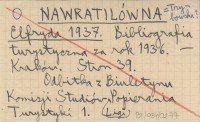 NAWRATILÓWNA
Elfryda 1937. Bibliografia
turystyczna za rok 1936. —
Kraków. Stron 39.
Odbitka z Biuletynu
Komisji Studiów Popierania
Turystyki 1.